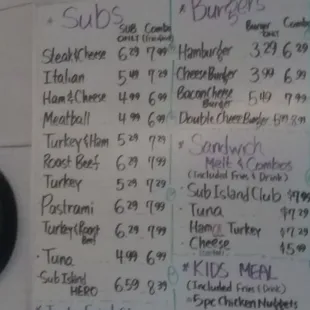 Subs
SUB Combo
ONLY (Fries & Drink)
Steak & Cheese 6.29 7.99
Italian 5.49 7.29
Ham & Cheese 4.99 6.99
Meatball 4.99 6.99
Turkey & Ham 5.29 7.29
Roast Beef 6.29 7.99
Turkey 5.29 7.29
Pastrami 6.29 7.99
Turkey & Roast Beef 6.29 7.99
Tuna 4.99 6.99
Sub Island
HERO 6.59 8.39
Burgers
Burger Combo
ONLY
Hamburger 3.29 6.29
Cheese Burger 3.99 6.99
Bacon Cheese
Burger 5.49 7.99
Double Cheese Burger
Sandwich
Melt & Combos
(Included Fries & Drink)
Sub Island Club $7.99
Tuna $7.29
Ham Turkey $7.29
Cheese $5.99
* KIDS MEAL
(Included Fries & Drink)
5pc Chicken Nuggets